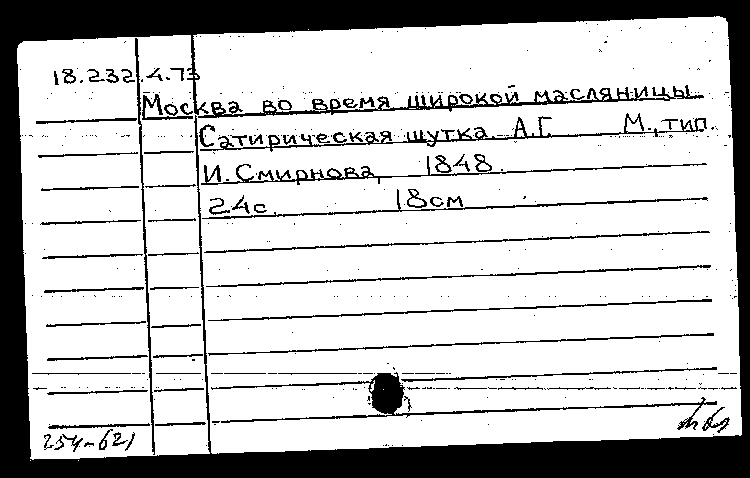 18.232.4.73
Москва во время широкой масляницы
Сатирическая шутка. А.Г. М., тип.
И. Смирнова, 1848.
24с. 18см
254-621